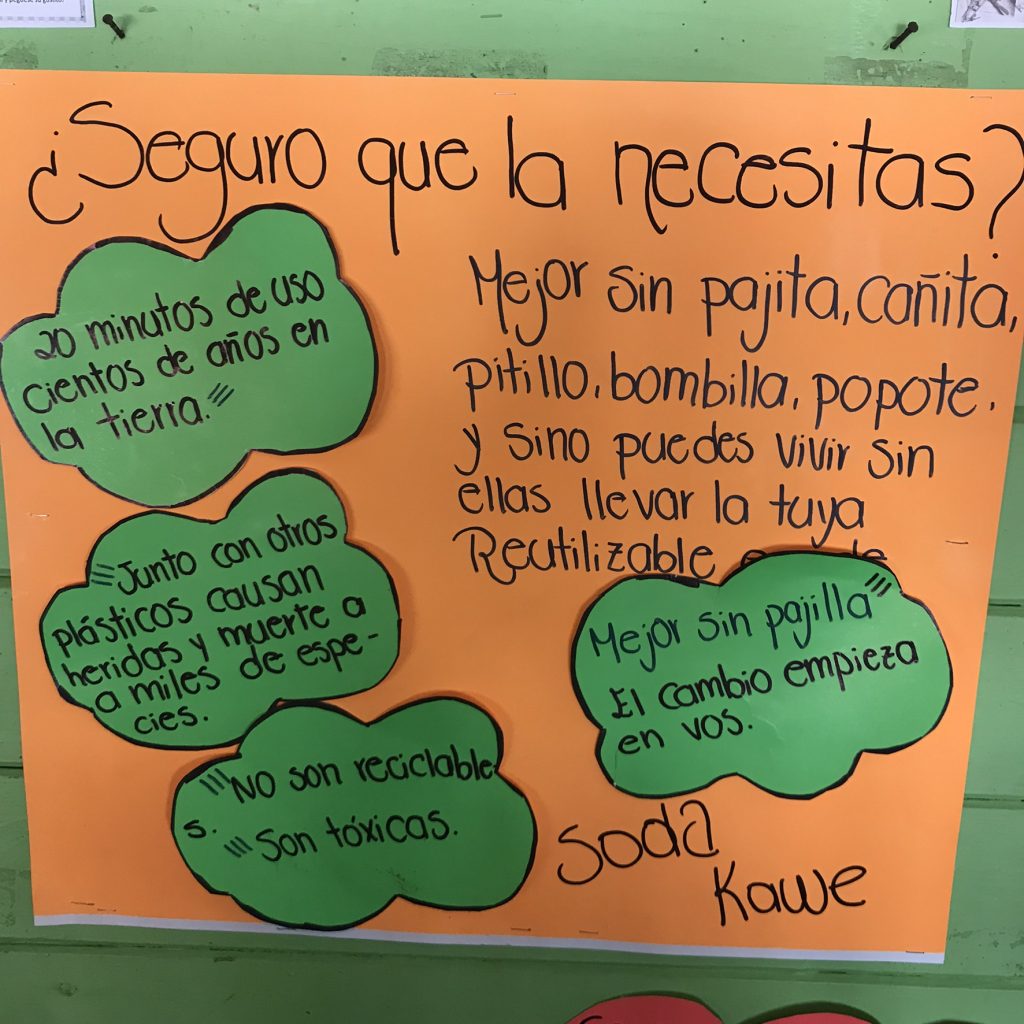 ¿Seguro que la necesitas?
20 minutos de uso
cientos de años en
la tierra.
Junto con otros
plásticos causan
heridas y muerte a
a miles de espe-
cies.
No son reciclable
s.
Son tóxicas.
Mejor sin pajita, cañita,
pitillo, bombilla, popote.
y sino puedes vivir sin
ellas llevar la tuya
Reutilizable
Mejor sin pajilla
El cambio empieza
en vos.
Soda
Kawe